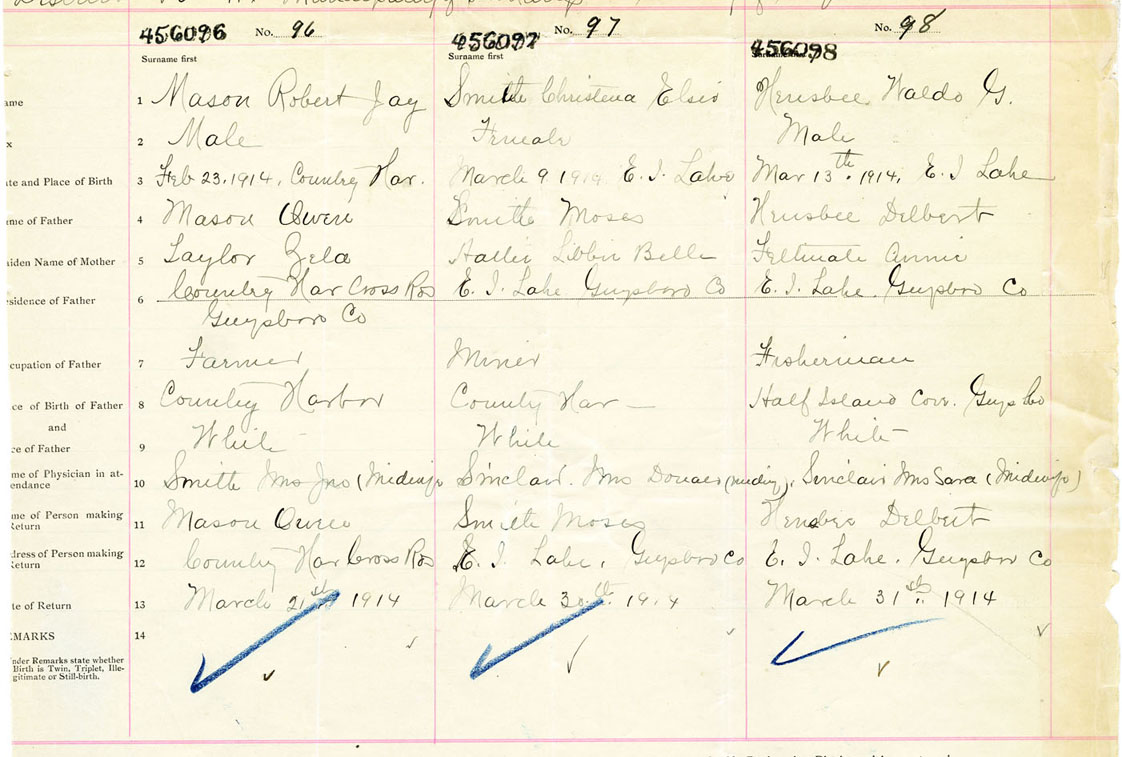 456096 No. 96 456097 No. 97 456098 No. 98
Surname first Surname first
ame 1 Mason Robert Jay Smith Christena Elsie Hensbee Waldo G.
x 2 Male Female Male
ate and Place of Birth 3 Feb 23. 1914. Country Har. March 9 1914 E. I. Lake Mar 13th. 1914, E. I Lake
me of Father 4 Mason Owen Smith Moses Hensbee Delbert
aiden Name of Mother 5 Taylor Zela Libbie Belle Feltmate Annie
esidence of Father 6 Country Har Cross Ros E. I. Lake Guysboro Co E. I. Lake. Guysboro Co
Guysboro Co
cupation of Father 7 Farmer Miner Fisherman
ce of Birth of Father 8 Country Harbor County Har Half Island Cove. Guysboro
and
ce of Father 9 White White White
me of Physician in at- 10 Smith Mrs Jno (Midwife Sinclair. Mrs Sinclair Mrs Sara (Midwife)
endance
me of Person making 11 Mason Owen Smith Moses Hensbee Delbert
Return
dress of Person making 12 Country Har Cross Ros E. I. Lake, Guysboro Co E. I. Lake. Guysboro Co
Return
te of Return 13 March 21st 1914 March 30th 1914 March 31st. 1914
EMARKS 14
nder Remarks state whether
Birth is Twin, Triplet, Ille-
gitimate or Still-birth.